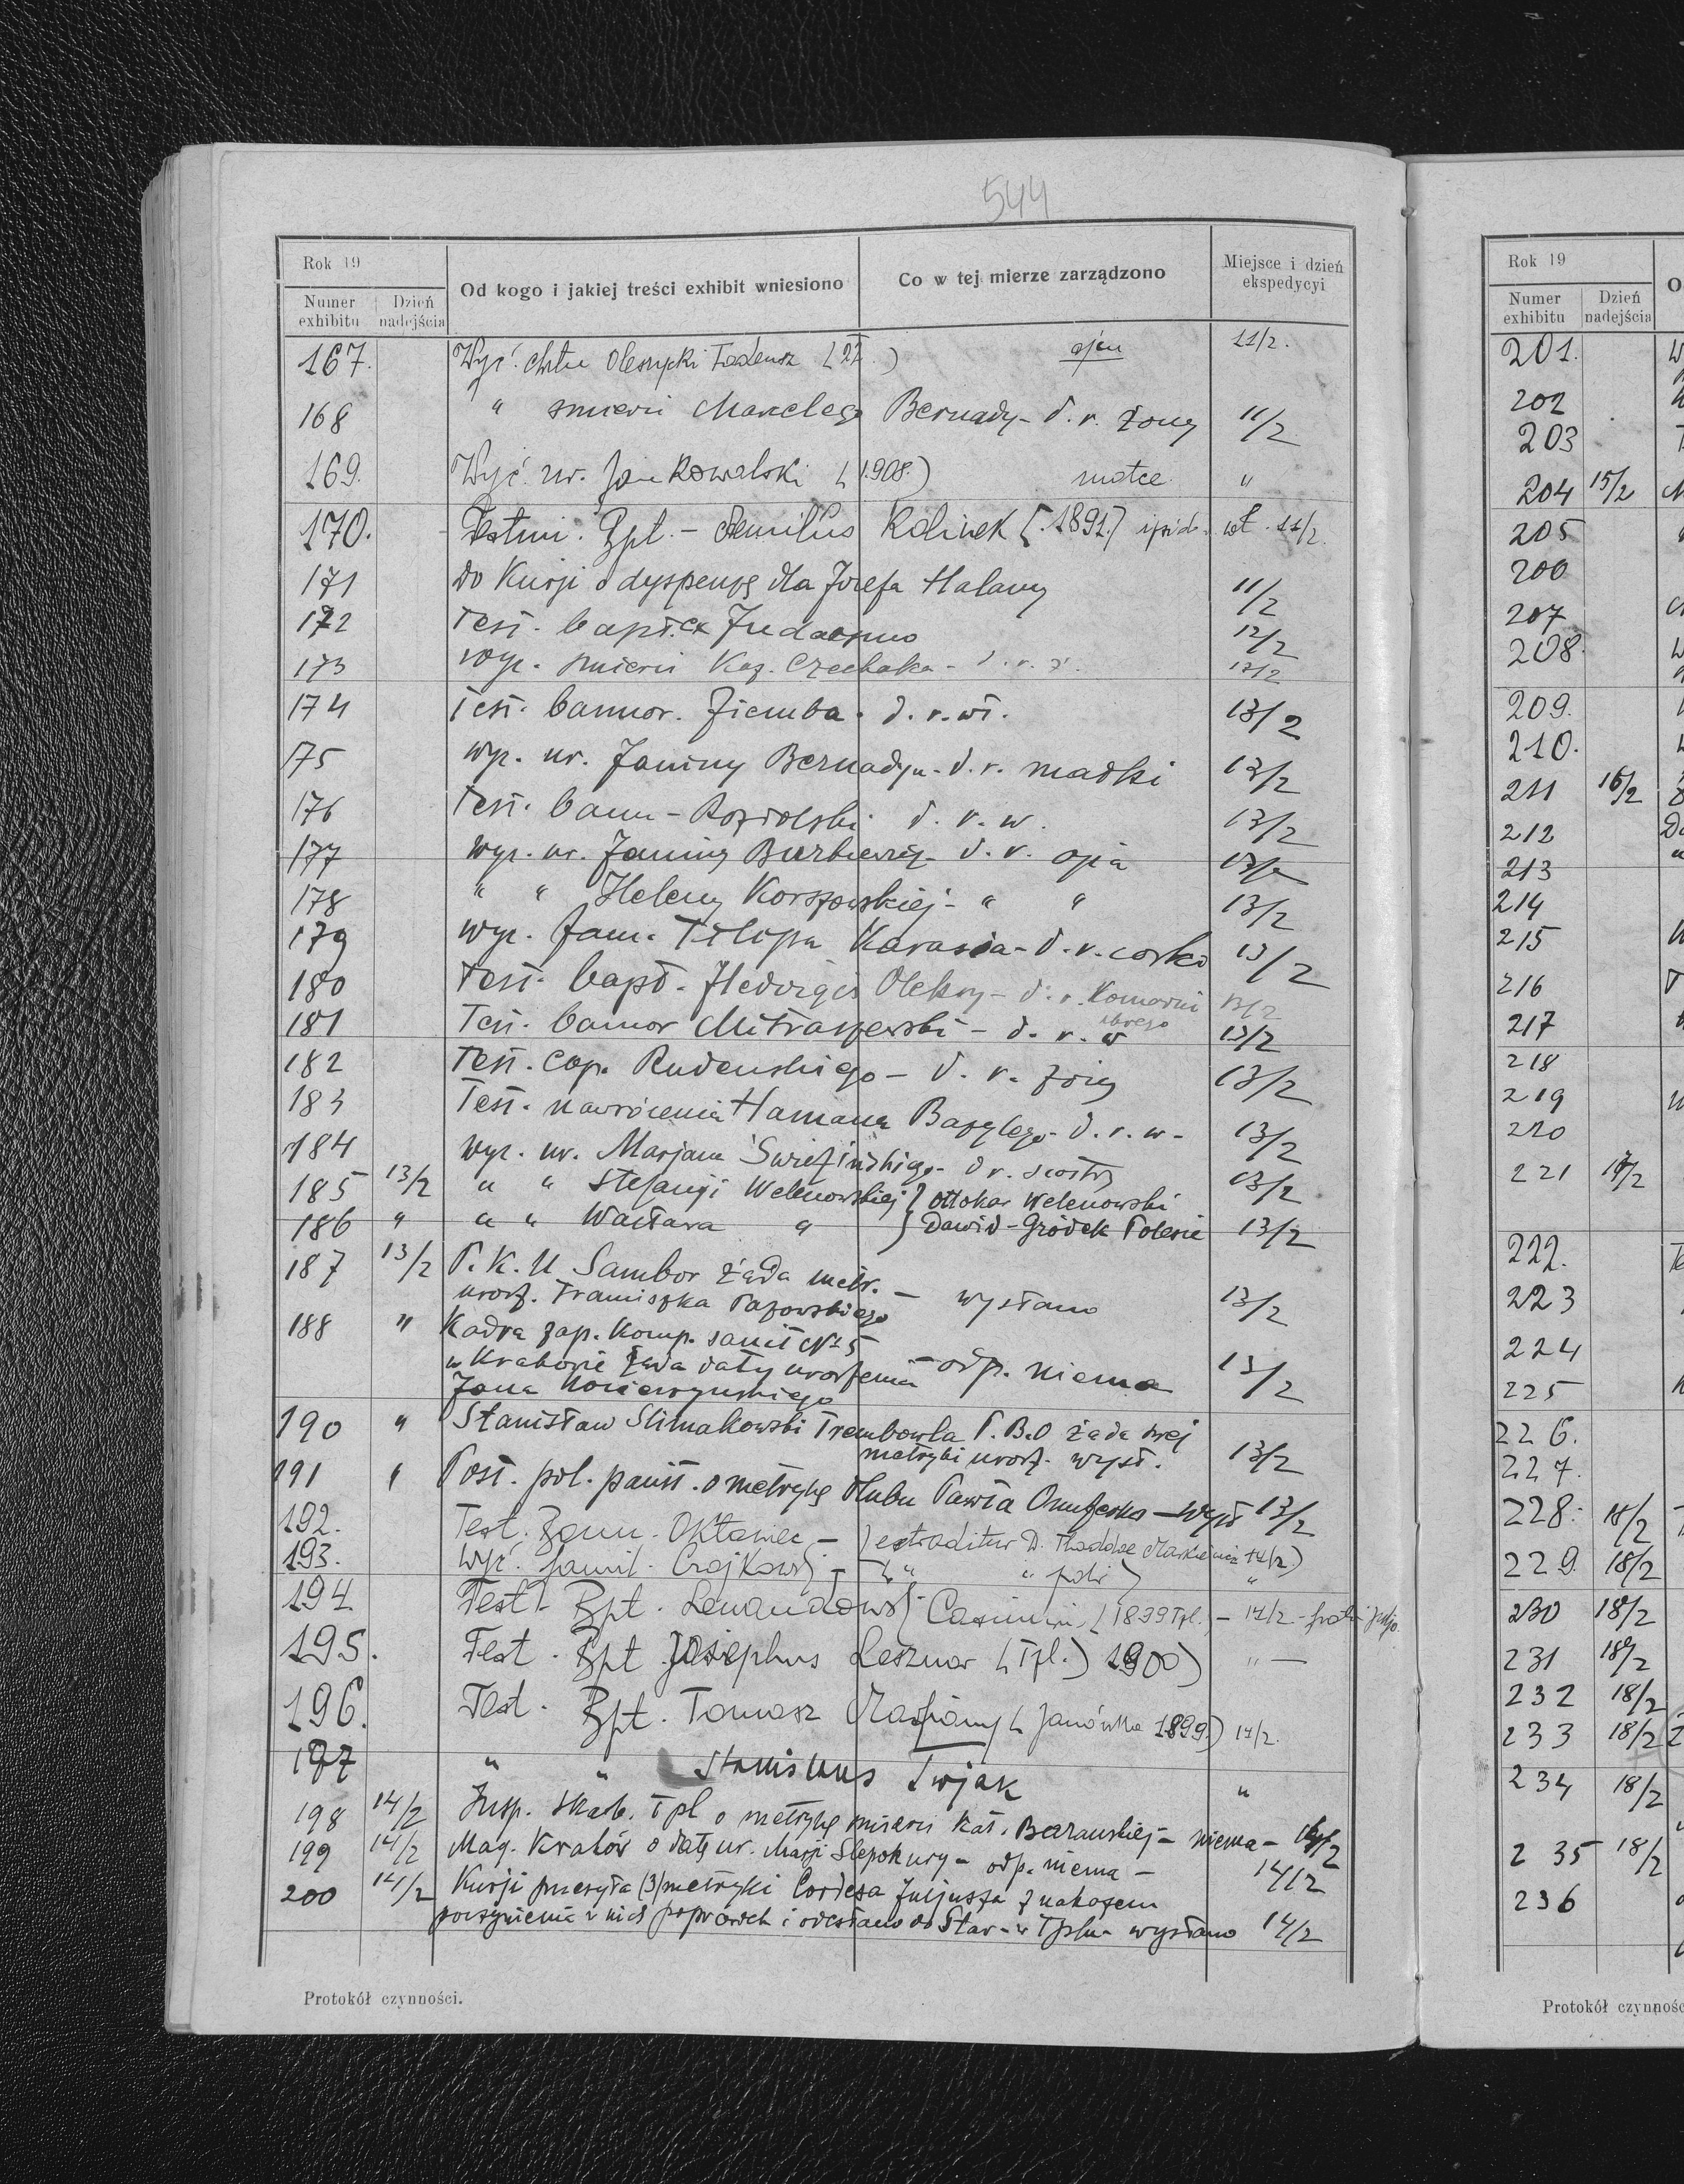 544
Rok 19
Numer exhibitu
Dzień nadejścia
Od kogo i jakiej treści exhibit wniesiono
Co w tej mierze zarządzono
Miejsce i dzień ekspedycyi
167. Wyć. chrztu Tadeusz 11/2.
168 " śmierci Marcelego Bernady - d. r. żony 11/2
169. Wyć. ur. Jan Kowalski (1908.) matce "
170. Testim. Bpt. - Aemilius Rolinek [1891.] 11/2.
171 Do Kurji o dyspensę dla Józefa Halamy 11/2
172 Test. bapt. ex Judaismo 12/2
173 wyc. śmierci Kaz. Czechaka - d. r. ż. 12/2
174 Test. bannor. Ziemba - d. r. wł. 13/2
175 wyc. ur. Janiny Bernadyn - d. r. matki 13/2
176 Test. bann - d. r. w. 13/2
177 wyc. ur. Janiny - d. r. ojca 13/2
178 " " Heleny Korszowskiej - " " 13/2
179 wyc. fam. Filipa Karasia - d. r. córka 13/2
180 Test. bapt. Hedvigis Oleksy - d. r. 13/2
181 Test. bannor Mitraszewski - d. r. w 13/2
182 Test. cop. Rudenskiego - d. r. żony 13/2
183 Test. nawrócenia Hamana Bazylego - d. r. w - 13/2
184 wyc. ur. Marjana - d r. siostry 13/2
185 13/2 " " Stefanji Welenowskiej } Ottokar Welenowski
186 " " " Wacława " } Dawid-Gródek Polesie 13/2
187 13/2 P.K.U Sambor żąda metr.
urodz. Franciszka Pazowskiego - wysłano 13/2
188 " Kadra zap. Komp. sanit № 5
w Krakowie żąda daty urodzenia - odp. niema 13/2
Jana
190 " Stanisław Slimakowski Trembowla P.B.O żąda swej
metryki urodz. wysł. 13/2
191 " Post. pol. państ. o metrykę ślubu Pawła - wysł 13/2
192. Test. Bann. - ) extraditur D. 14/2)
193. Wyć. famil. - " " "
194. Test. Bpt. Casimiri (1899 Tpl.) - 14/2 -
195. Test. Bpt Josephus Lesznar (Tpl.) 1900) " -
196. Test. Bpt. Tomasz (Janówka 1899.) 14/2.
197 " " Stanislaus "
198 14/2 Insp. skarb. Tpl o metrykę śmierci Kat. - niema - 14/2
199 14/2 Mag. Kraków o datę ur. Marji Slepokury - odp. niema - 14/2
200 14/2 Kurji przesyła (3) metryki Cordesa Juljusza z nakazem
poczynienia w nich poprawek i odesłano do Star - w Tplu - wysłano 14/2
Protokół czynności.
Rok 19
Numer exhibitu
Dzień nadejścia
O
201.
202
203
204 15/2
205
200
207
208.
209.
210.
211 16/2
212
213
214
215
216
217
218
219
220
221 17/2
222.
223
224
225
226.
227.
228. 18/2
229. 18/2
230 18/2
231 18/2
232 18/2
233 18/2
234 18/2
235 18/2
236
Protokół czynnośc